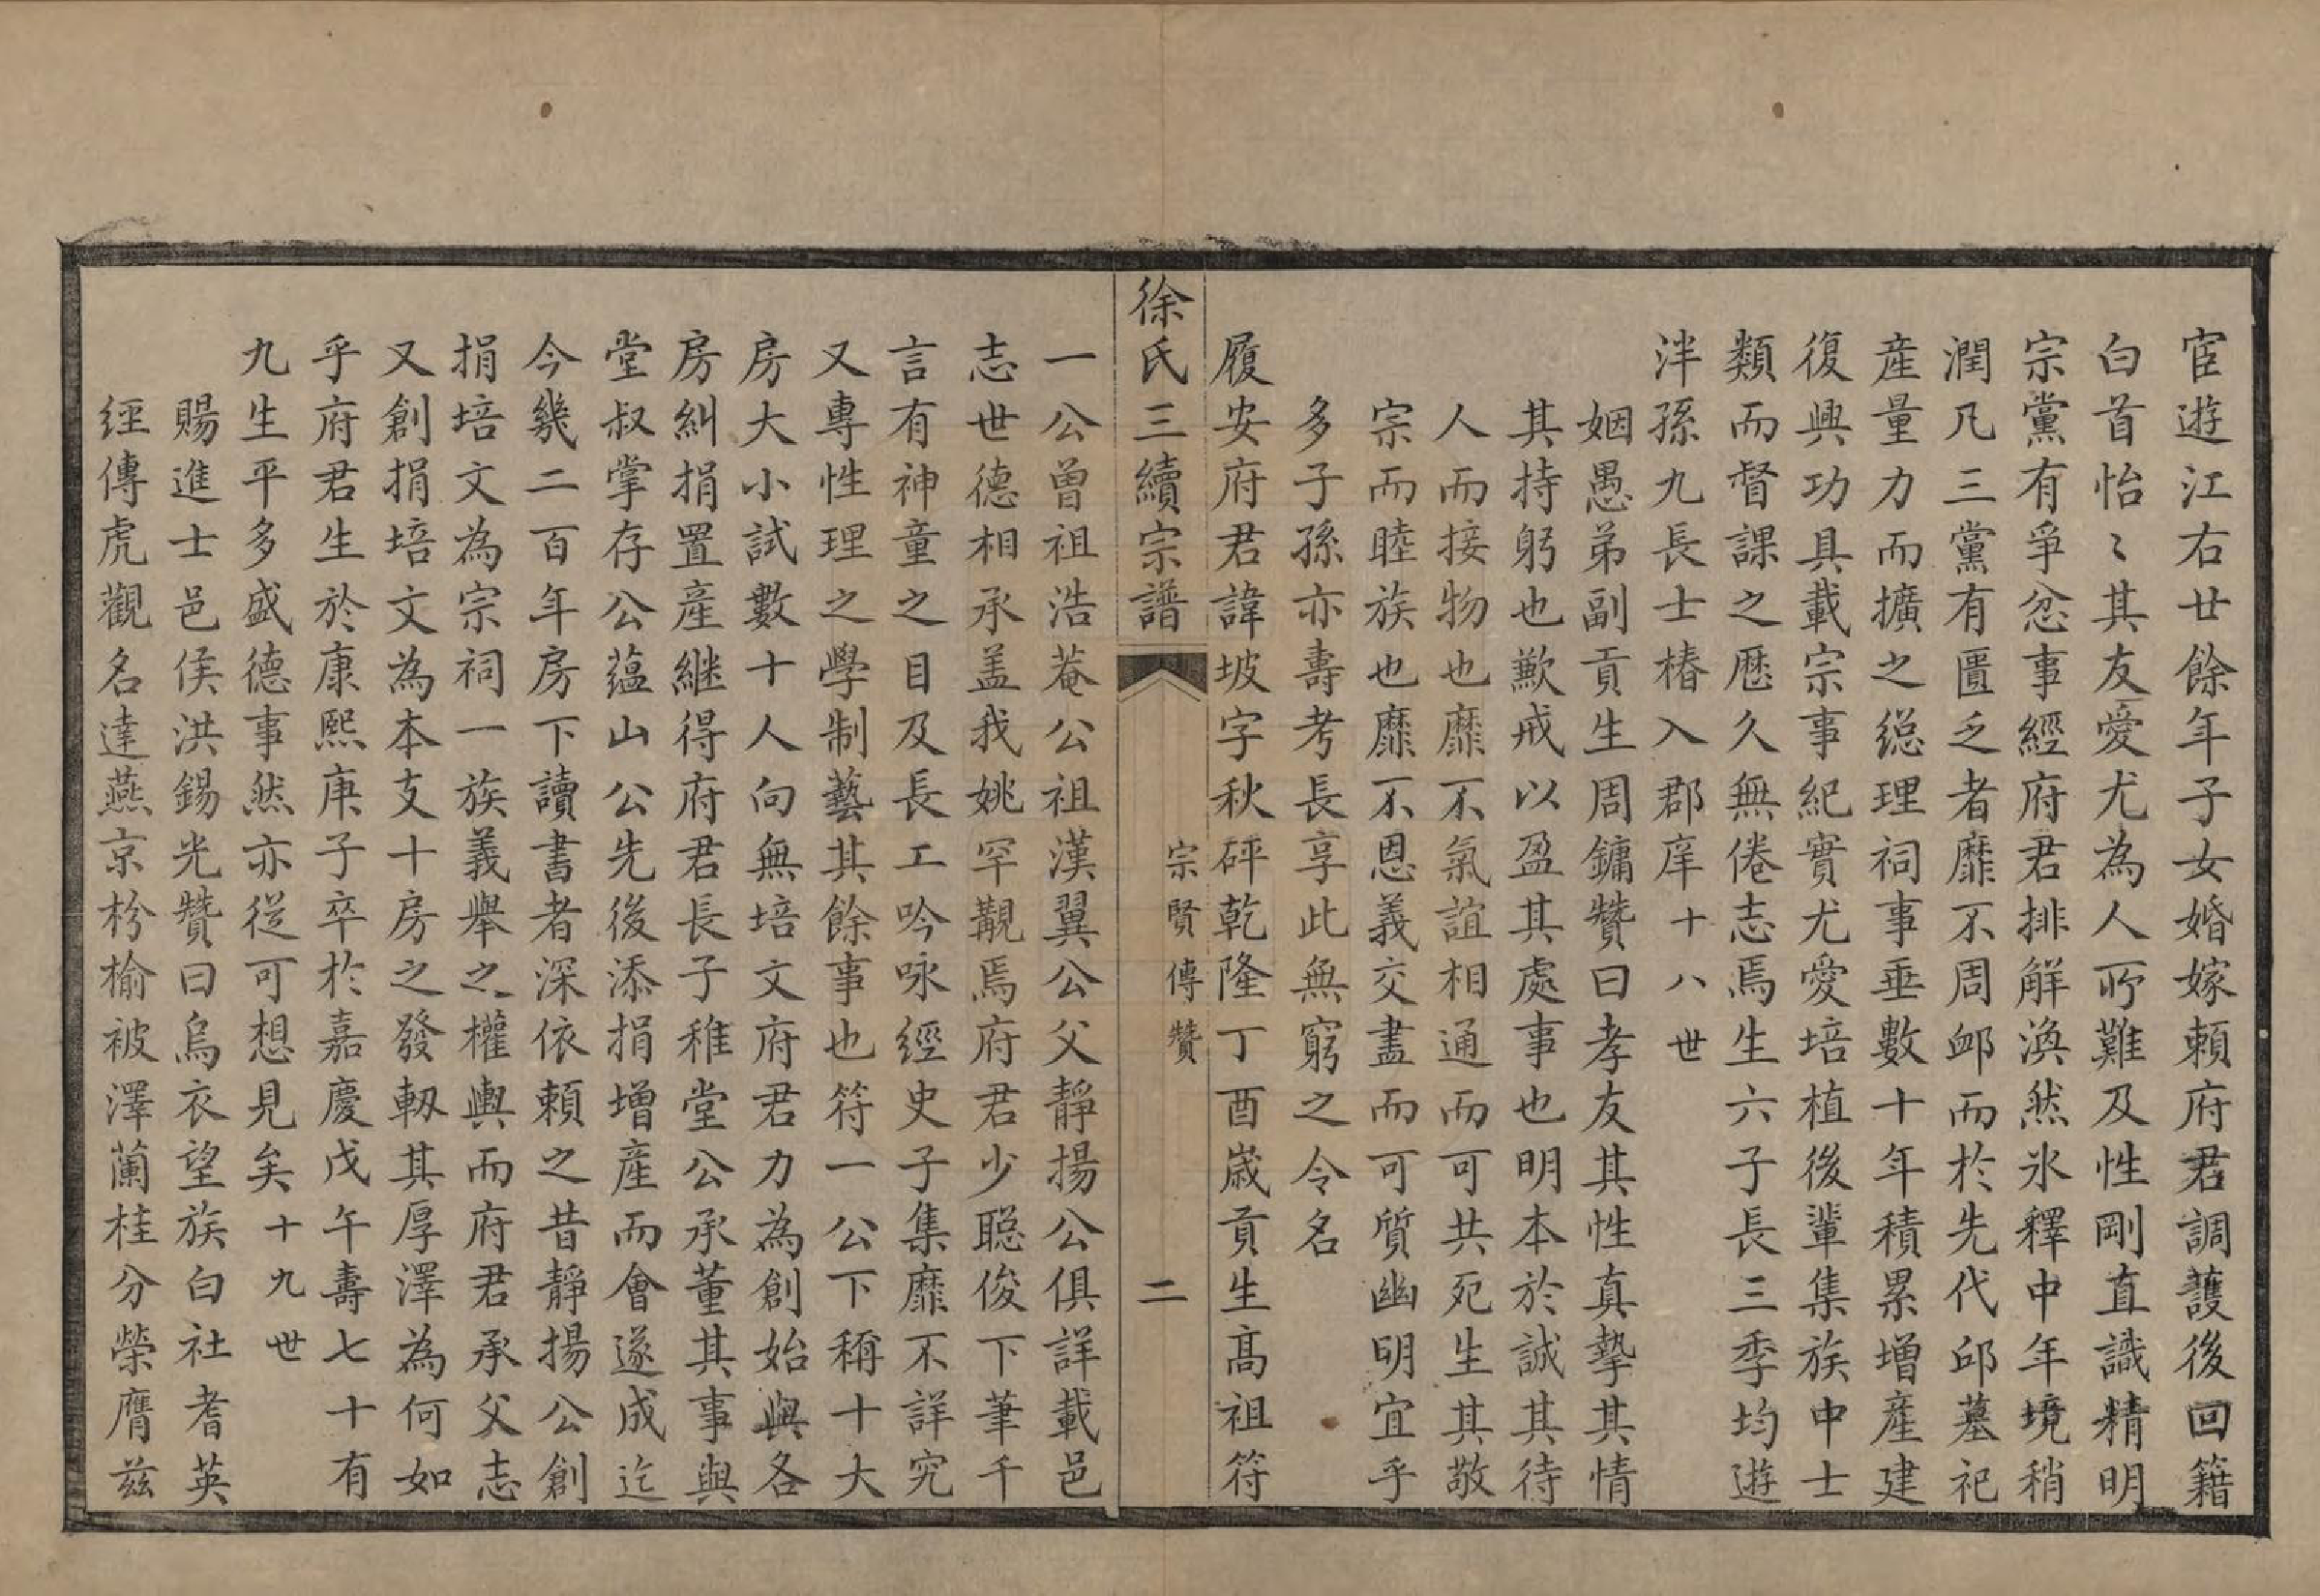 宦遊江右廿餘年子女婚嫁賴府君調護後回籍
白首怡〻其友愛尤為人所難及性剛直識精明
宗黨有爭忿事經府君排解渙然氷釋中年境稍
潤凡三黨有匱乏者靡不周卹而於先代邱墓祀
産量力而擴之総理祠事垂數十年積累增產建
復興功具載宗事紀實尤愛培植後輩集族中士
類而督課之歷久無倦志焉生六子長三季均遊
泮孫九長士椿入郡庠十八世
姻愚弟副貢生周鏞贊曰孝友其性真摯其情
其持躬也歉戒以盈其處事也明本於誠其待
人而接物也靡不氣誼相通而可共死生其敬
宗而睦族也靡不恩義交盡而可質幽明宜乎
多子孫亦壽考長享此無窮之令名
履安府君諱坡字秋砰乾隆丁酉歲貢生高祖符
徐氏三續宗譜
宗賢傳贊
二
一公曾祖浩菴公祖漢翼公父靜揚公俱詳載邑
志世德相承盖我姚罕覯焉府君少聰俊下筆千
言有神童之目及長工吟咏經史子集靡不詳究
又專性理之學制藝其餘事也符一公下稱十大
房大小試數十人向無培文府君力為創始與各
房糾捐置産継得府君長子稚堂公承董其事與
堂叔掌存公蘊山公先後添捐增產而會遂成迄
今幾二百年房下讀書者深依賴之昔靜揚公創
捐培文為宗祠一族義舉之權輿而府君承父志
又創捐培文為本支十房之發軔其厚澤為何如
乎府君生於康熙庚子卒於嘉慶戊午壽七十有
九生平多盛德事然亦從可想見矣十九世
賜進士邑侯洪錫光贊曰烏衣望族白社耆英
經傳虎觀名達燕京枌榆被澤蘭桂分榮膺茲